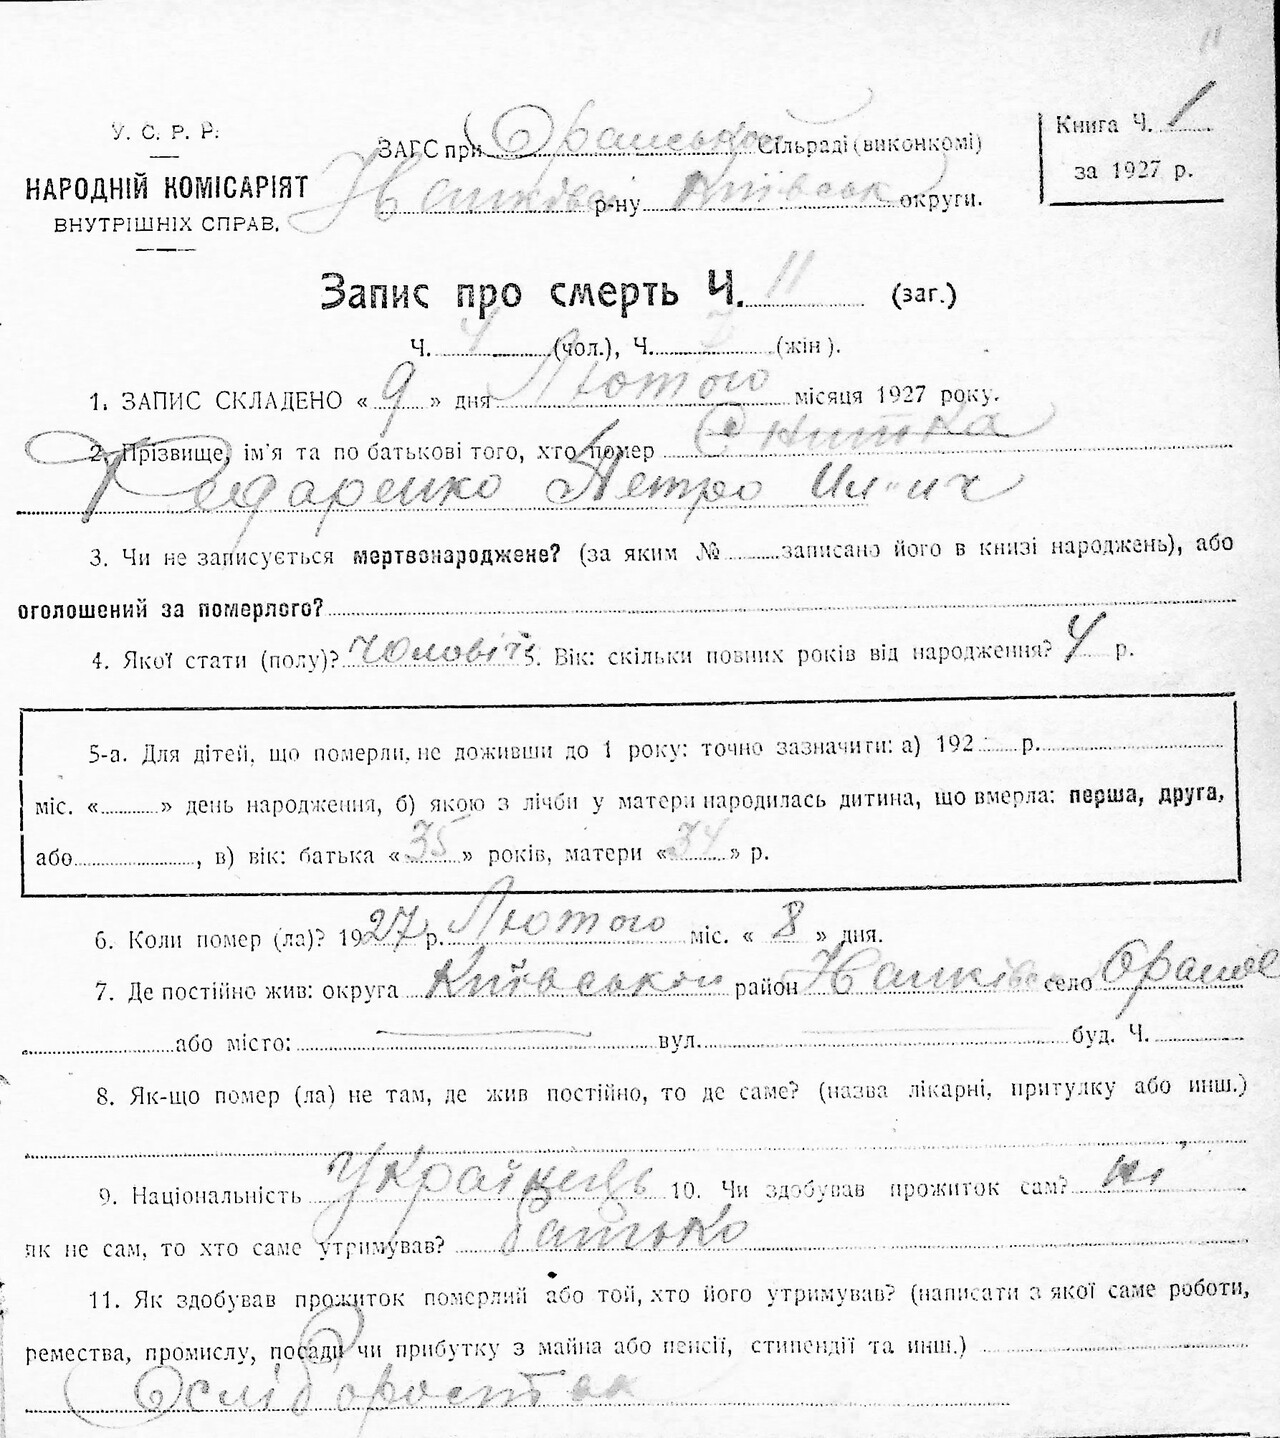 11
У. С. Р. Р.
НАРОДНІЙ КОМІСАРІЯТ
ВНУТРІШНІХ СПРАВ.
ЗАГС при Оранській Сільраді (виконкомі)
р-ну Київськ округи.
Книга Ч. 1
за 1927 р.
Запис про смерть Ч. 11 (заг.)
Ч. 4 (чол.), Ч. (жін).
1. ЗАПИС СКЛАДЕНО « 9 » дня Лютого місяця 1927 року.
2. Прізвище, ім'я та по батькові того, хто помер
Петро
3. Чи не записується мертвонароджене? (за яким № записано його в книзі народжень), або
оголошений за померлого?
4. Якої стати (полу)? 5. Вік: скільки повних років від народження? 4 р.
5-а. Для дітей, що померли, не доживши до 1 року: точно зазначити: а) 192 р.
міс. « » день народження, б) якою з лічби у матери народилась дитина, що вмерла: перша, друга,
або , в) вік: батька « 35 » років, матери « 34 » р.
6. Коли помер (ла)? 1927 р. Лютого міс. « 8 » дня.
7. Де постійно жив: округа Київськой район село Ораное
або місто: вул. буд. Ч.
8. Як-що помер (ла) не там, де жив постійно, то де саме? (назва лікарні, притулку або инш.)
9. Національність Українець 10. Чи здобував прожиток сам? ні
як не сам, то хто саме утримував? батько
11. Як здобував прожиток померлий або той, хто його утримував? (написати з якої саме роботи,
ремества, промислу, посади чи прибутку з майна або пенсії, стипендії та инш.)